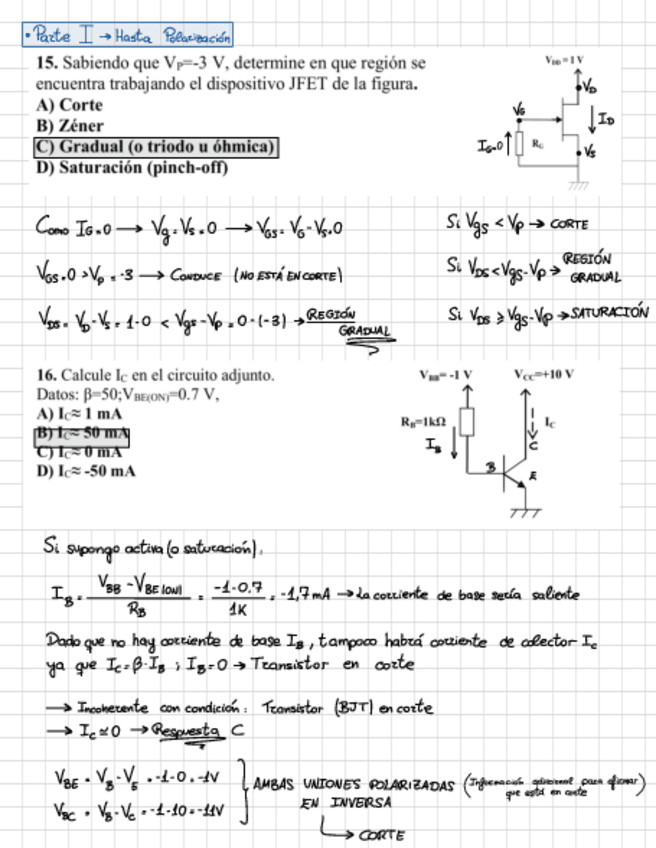 • Parte I → Hasta Polarización
15. Sabiendo que VP=-3 V, determine en que región se
encuentra trabajando el dispositivo JFET de la figura.
A) Corte
B) Zéner
C) Gradual (o triodo u óhmica)
D) Saturación (pinch-off)
VDD = 1 V
VD
VG
ID
IG=0
RG
VS
Como IG=0 → Vg=Vs=0 → VGS=VG-VS=0
VGS=0 > Vp = -3 → CONDUCE (NO ESTÁ EN CORTE)
VDS = VD-VS = 1-0 < Vgs-Vp = 0-(-3) → REGIÓN
GRADUAL
Si Vgs < Vp → CORTE
Si VDS < Vgs-Vp → REGIÓN
GRADUAL
Si VDS ≥ Vgs-Vp → SATURACIÓN
16. Calcule IC en el circuito adjunto.
Datos: β=50;VBE(ON)=0.7 V,
A) IC≈ 1 mA
B) IC≈ 50 mA
C) IC≈ 0 mA
D) IC≈ -50 mA
VBB= -1 V
VCC=+10 V
RB=1kΩ
IB
IC
C
B
E
Si supongo activa (o saturación),
IB = VBB - VBE(ON) / RB = -1-0.7 / 1K = -1,7 mA → La corriente de base sería saliente
Dado que no hay corriente de base IB, tampoco habrá corriente de colector Ic
ya que Ic=β·IB ; IB=0 → Transistor en corte
→ Incoherente con condición: Transistor (BJT) en corte
→ Ic≃0 → Respuesta C
VBE = VB-VE = -1-0 = -1V
VBC = VB-Vc = -1-10 = -11V
AMBAS UNIONES POLARIZADAS (Información adicional para afirmar
que está en corte)
EN INVERSA
→ CORTE